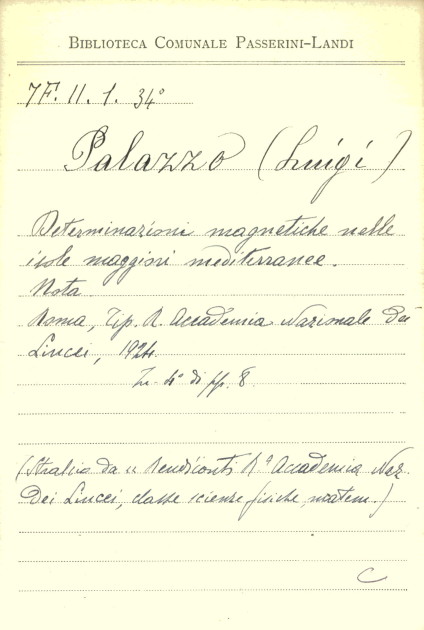 BIBLIOTECA COMUNALE PASSERINI-LANDI
7F. II. 1. 34°
Palazzo (Luigi)
Determinazioni magnetiche nelle
isole maggiori mediterranee.
Nota
Roma, Tip. R. Accademia Nazionale dei
Lincei, 1924.
In 4° di pp. 8.
(Stralcio da "Rendiconti Rª Accademia Naz.
Dei Lincei, classe scienze fisiche, matem.)
C